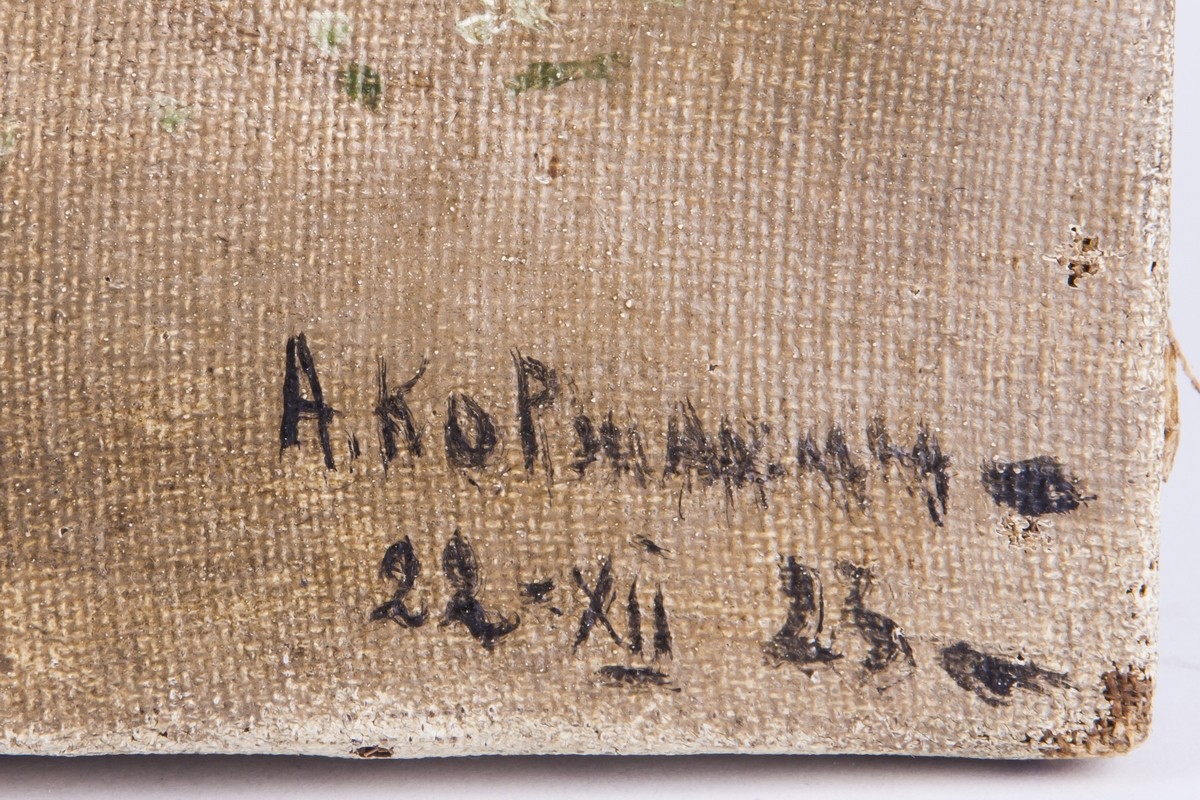 А. КОРжавин
22-XII 23